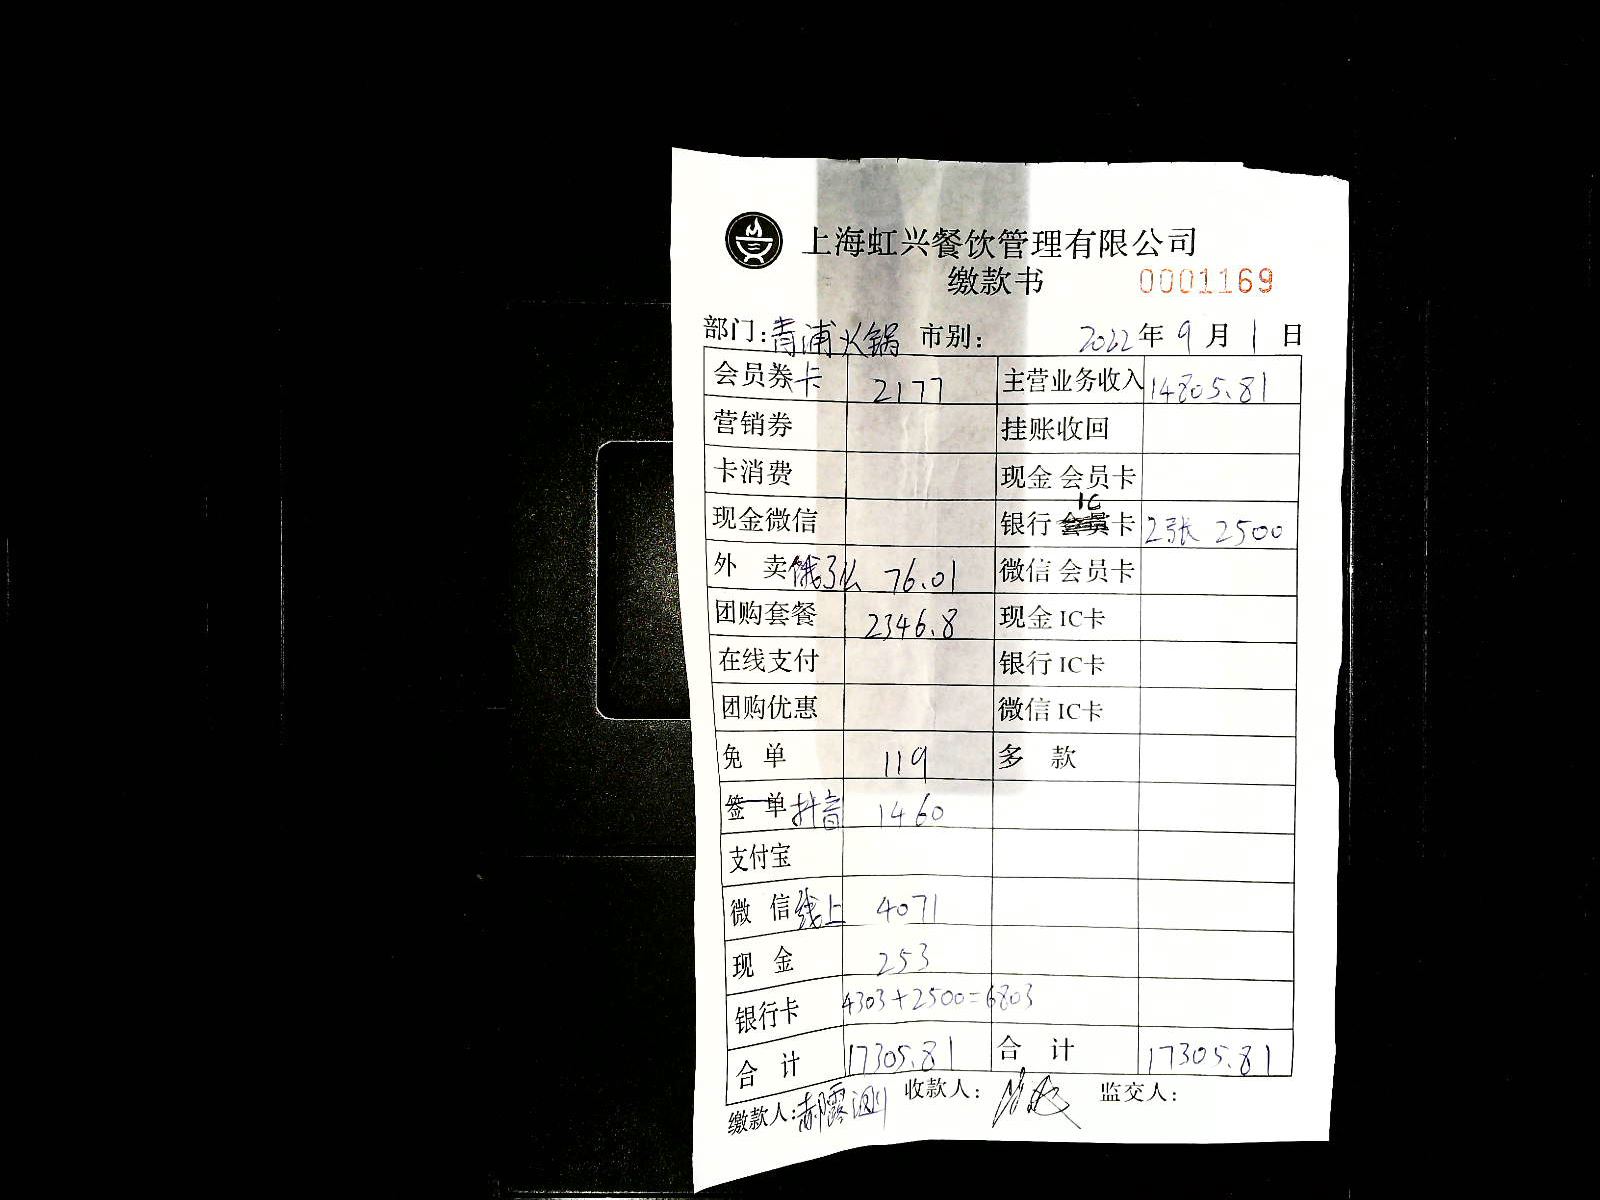 上海虹兴餐饮管理有限公司
缴款书 0001169
部门:青浦火锅 市别: 2022年9月1日
会员券卡 2177 主营业务收入 14805.81
营销券 挂账收回
卡消费 现金 会员卡
现金微信 银行 IC卡 2张 2500
外 卖饿了么 76.01 微信 会员卡
团购套餐 2346.8 现金 IC卡
在线支付 银行 IC卡
团购优惠 微信 IC卡
免 单 119 多 款
签 单 抖音 1460
支付宝
微 信线上 4071
现 金 253
银行卡 4303+2500=6803
合 计 17305.81 合 计 17305.81
缴款人:郝露 收款人: 监交人: